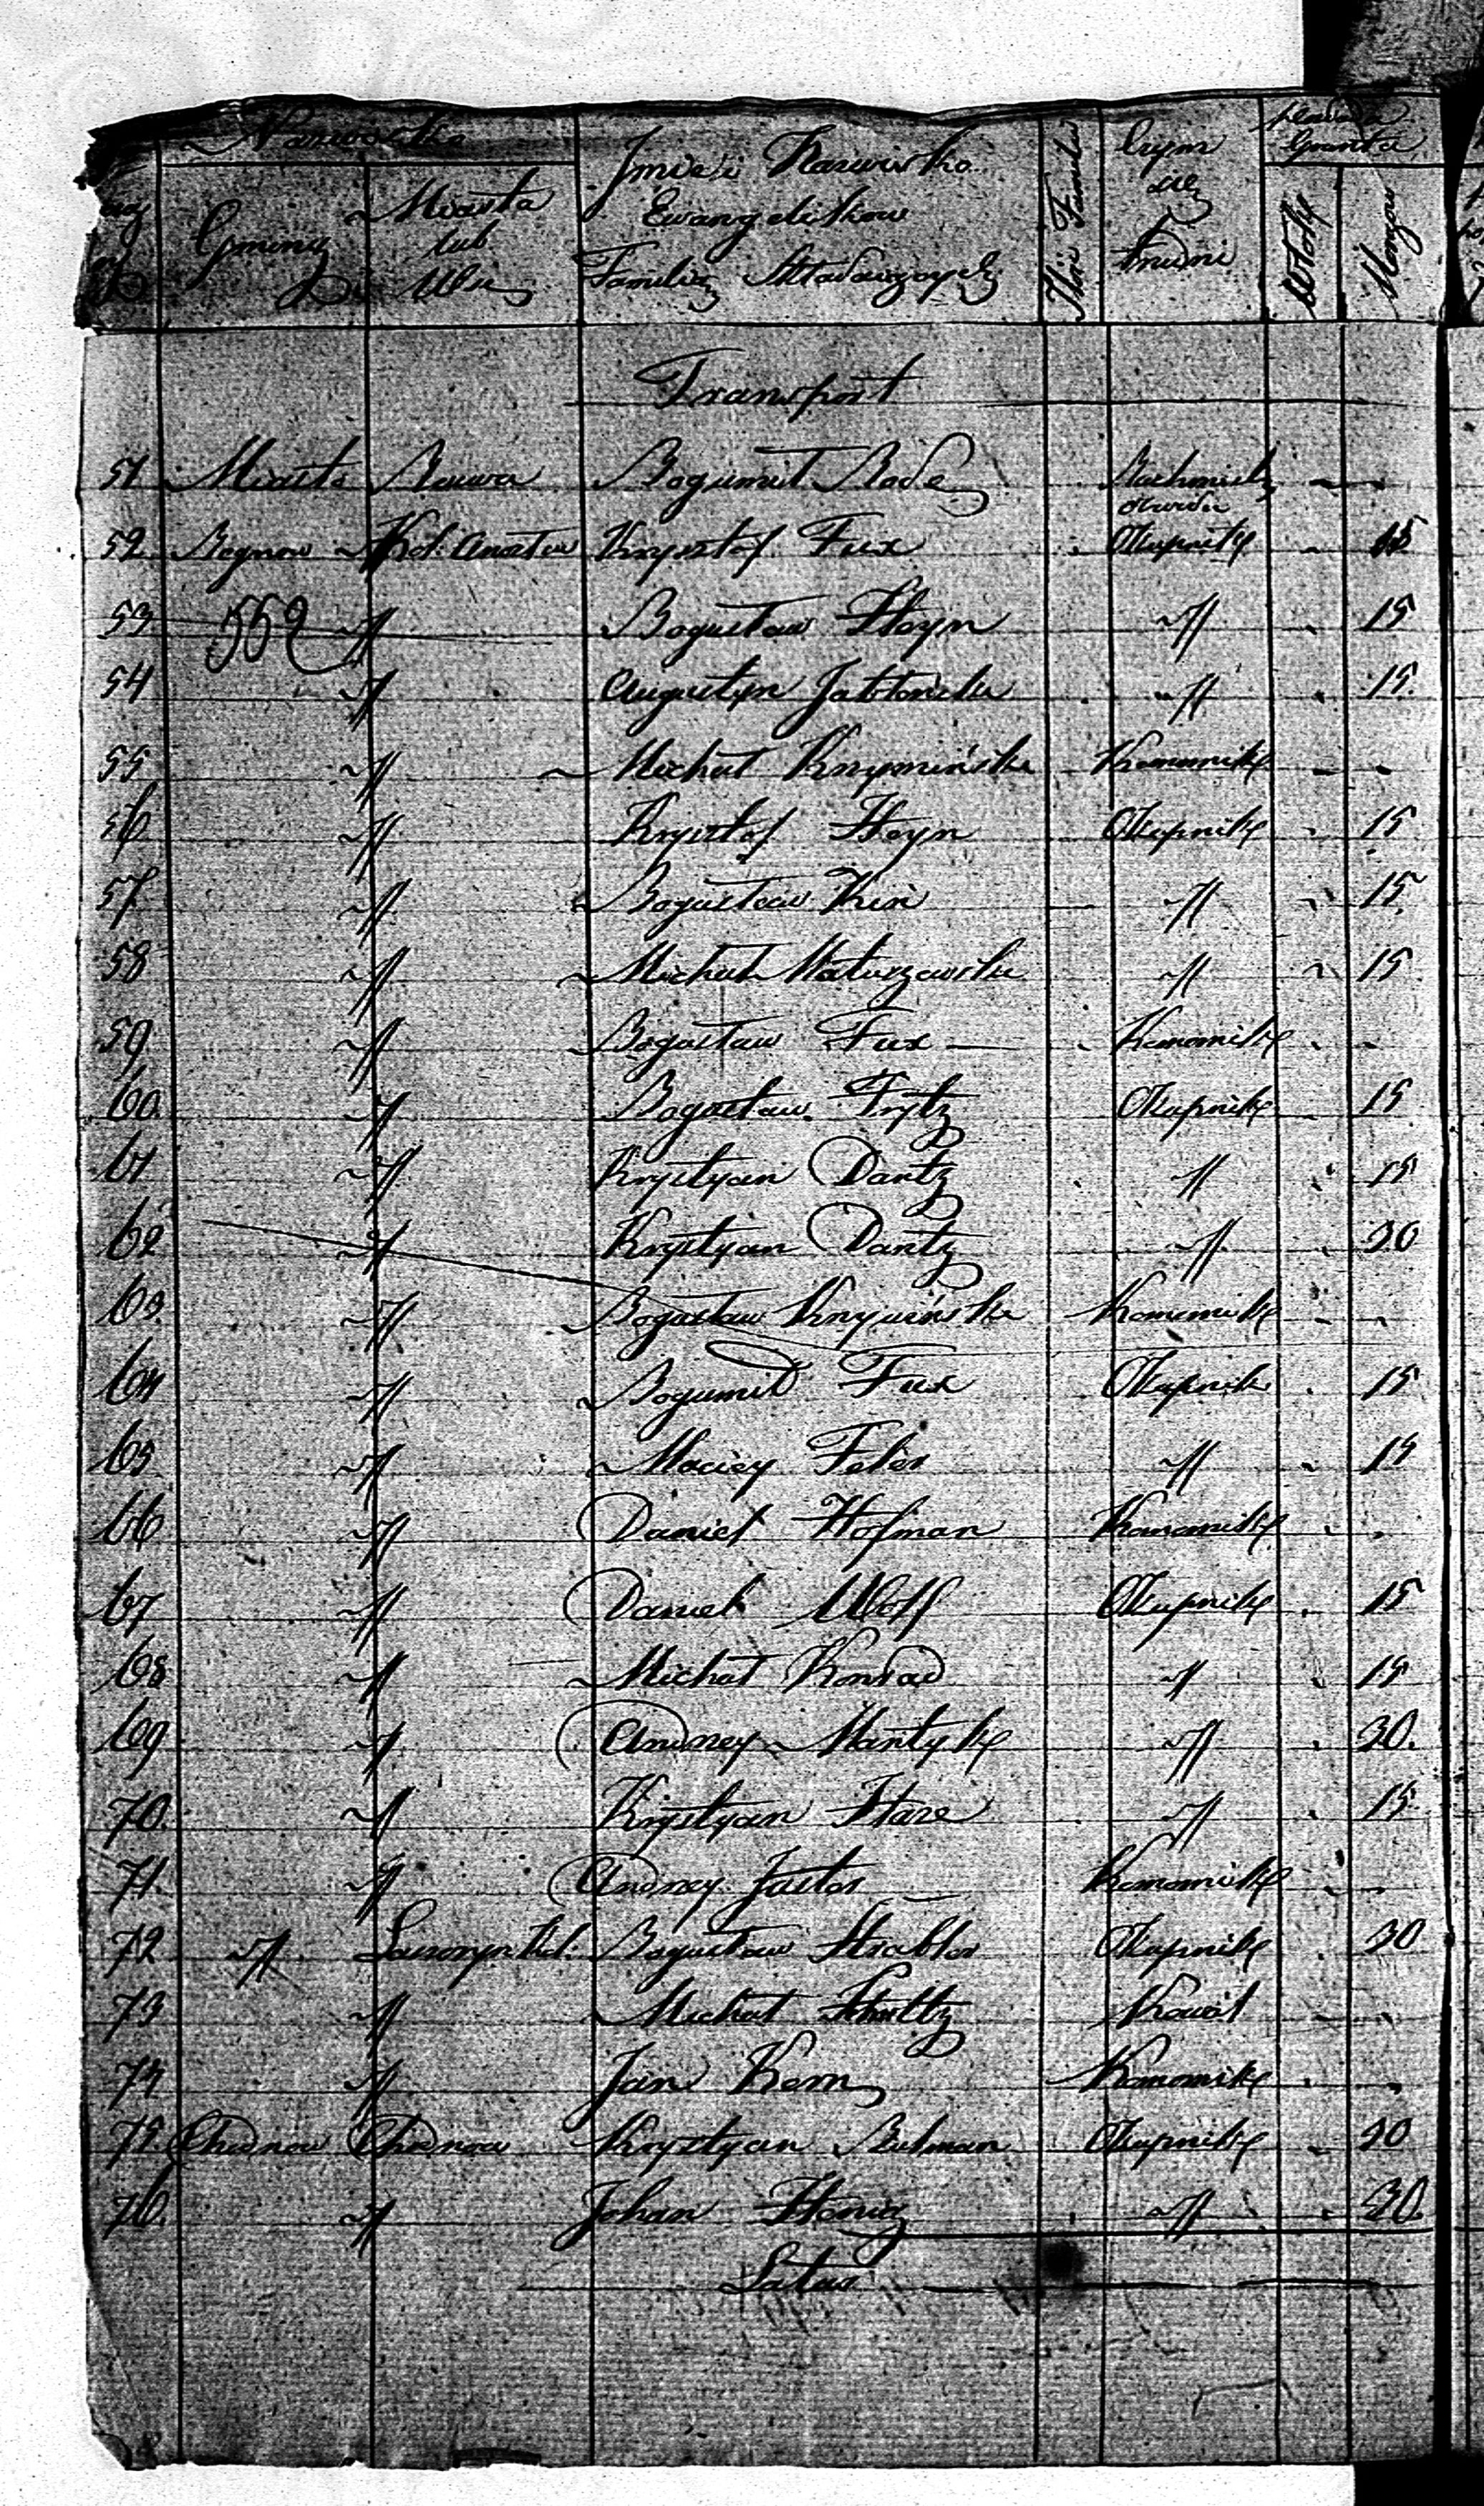 Nazwisko
Gminy
Miasta
lub
Wsi
Imie i Nazwisko
Ewangelikow
Familię Składaiących
Ilość Familii
Czym
się
trudni
posiada
Gruntu
Włoki
Morgow
Transport
51 Miasto Rawa Bogumił Bode - -
52 Regnow Kol: Annosław Krysztof Fux Okupnik - 15
53 552 " Bogusław Heyn " - 15
54 " Augustyn Jabłonski " - 15.
55 " Michał Krzyminśki Komornik - -
56 " Krysztof Heyn Okupnik - 15
57 " Bogusław Kin " - 15.
58 " Michał Maturzewski " - 15
59 " Bogusław Fux Komornik - -
60. " Bogusław Frytz Okupnik 15
61 " Krystyan Dantz " - 15
62 " Krystyan Dantz " - 30
63. " Bogusław Komornik - -
64 " Bogumił Fux Okupnik - 15
65 " Maciey Feler " - 15
66 " Daniel Hofman Komornik - -
67 " Daniel Wolf Okupnik - 15
68 " Michał Konrad " - 15
69 " Andrzey Martyk " - 30.
70. " Krystyan Haze " - 15
71. " Andrzey Juster Komornik - -
72 " Kol: Bogusław Okupnik - 30
73 " Michał Schultz Kowal -
74 " Jan Kem Komornik - -
75. Chodnow Chodnow Krystyan Bulman Okupnik - 30
76. " Johan Henig " - 30.
Latus